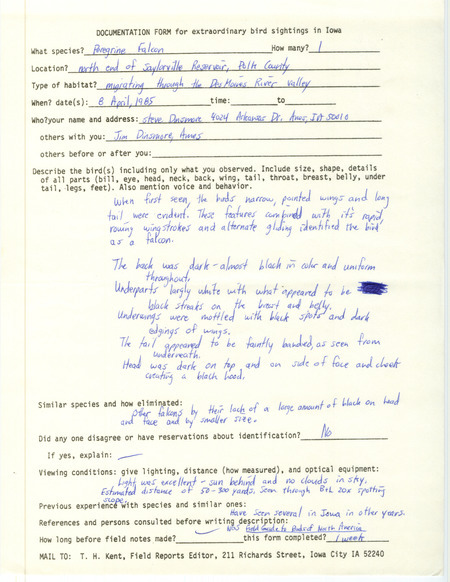 DOCUMENTATION FORM for extraordinary bird sightings in Iowa
What species? Peregrine Falcon How many? 1
Location? north end of Saylorville Reservoir, Polk County
Type of habitat? migrating through the Des Moines River valley
When? date(s): 8 April, 1985 time: to
Who? your name and address: Steve Dinsmore 4024 Arkansas Dr. Ames, IA 50010
others with you: Jim Dinsmore, Ames
others before or after you:
Describe the bird(s) including only what you observed. Include size, shape, details
of all parts (bill, eye, head, neck, back, wing, tail, throat, breast, belly, under
tail, legs, feet). Also mention voice and behavior.
When first seen, the birds narrow, pointed wings and long
tail were evident. These features combined with it's rapid,
rowing wingstrokes and alternate gliding identified the bird
as a falcon.
The back was dark - almost black in color and uniform
throughout.
Underparts largly white with what appeared to be
black streaks on the breast and belly.
Underwings were mottled with black spots and dark
edgings of wings.
The tail appeared to be faintly banded, as seen from
underneath.
Head was dark on top, and on side of face and cheek
creating a black hood.
Similar species and how eliminated:
Other falcons by their lack of a large amount of black on head
and face and by smaller size.
Did any one disagree or have reservations about identification? No
If yes, explain:
Viewing conditions: give lighting, distance (how measured), and optical equipment:
Light was excellent - sun behind and no clouds in sky.
Estimated distance of 50-300 yards. Seen through B+L 20x spotting
scope.
Previous experience with species and similar ones:
Have seen several in Iowa in other years.
References and persons consulted before writing description:
NGS Field Guide to Birds of North America
How long before field notes made? this form completed? 1 week
MAIL TO: T. H. Kent, Field Reports Editor, 211 Richards Street, Iowa City IA 52240